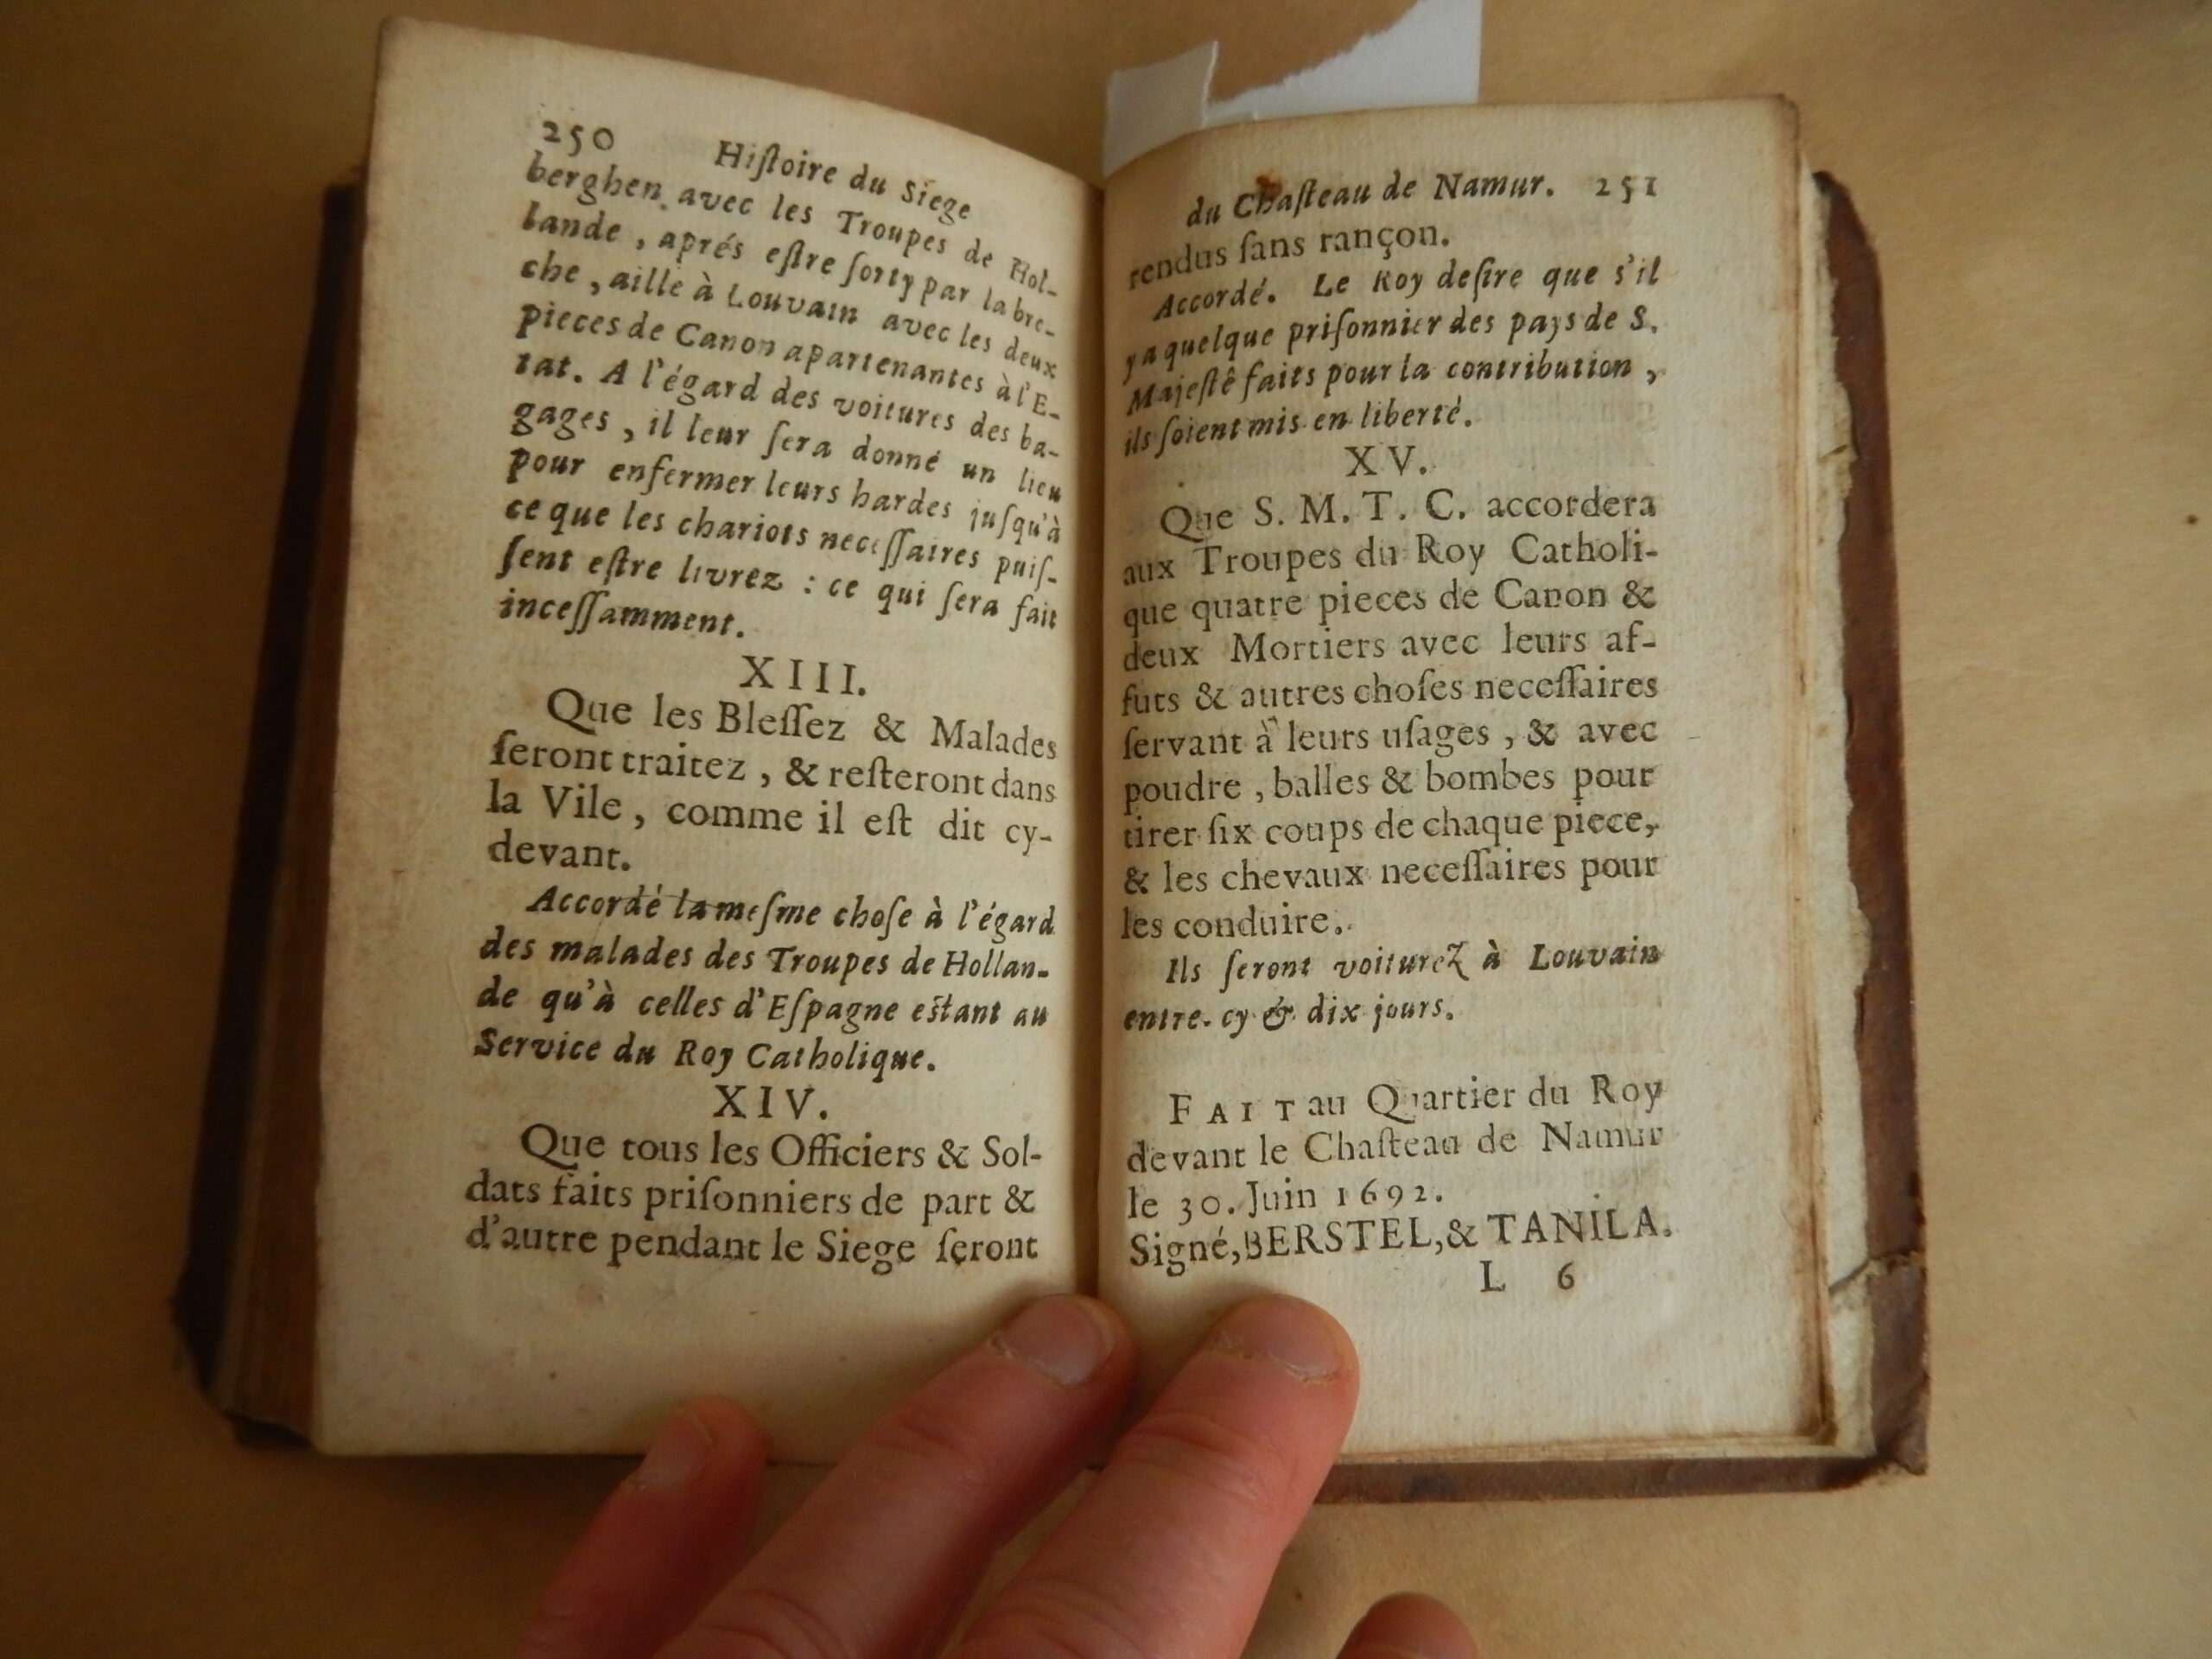 250 Hiſtoire du Siege
berghen avec les Troupes de Hol-
lande, aprés eſtre ſorty par la bre-
che, aille à Louvain avec les deux
pieces de Canon apartenantes à l'E-
tat. A l'égard des voitures des ba-
gages, il leur ſera donné un lieu
pour enfermer leurs hardes juſqu'à
ce que les chariots neceſſaires puiſ-
ſent eſtre livrez : ce qui ſera fait
inceſſamment.
XIII.
Que les Bleſſez & Malades
ſeront traitez, & reſteront dans
la Vile, comme il eſt dit cy-
devant.
Accordé la meſme choſe à l'égard
des malades des Troupes de Hollan-
de qu'à celles d'Eſpagne eſtant au
Service du Roy Catholique.
XIV.
Que tous les Officiers & Sol-
dats faits priſonniers de part &
d'autre pendant le Siege ſeront
du Chaſteau de Namur. 251
rendus ſans rançon.
Accordé. Le Roy deſire que s'il
y a quelque priſonnier des pays de S.
Majeſtê faits pour la contribution,
ils ſoient mis en liberté.
XV.
Que S. M. T. C. accordera
aux Troupes du Roy Catholi-
que quatre pieces de Canon &
deux Mortiers avec leurs af-
futs & autres choſes neceſſaires
ſervant à leurs uſages, & avec
poudre, balles & bombes pour
tirer ſix coups de chaque piece,
& les chevaux neceſſaires pour
les conduire.
Ils ſeront voiturez à Louvain
entre-cy & dix jours.
FAIT au Quartier du Roy
devant le Chaſteau de Namur
le 30. Juin 1692.
Signé, BERSTEL, & TANILA.
L 6